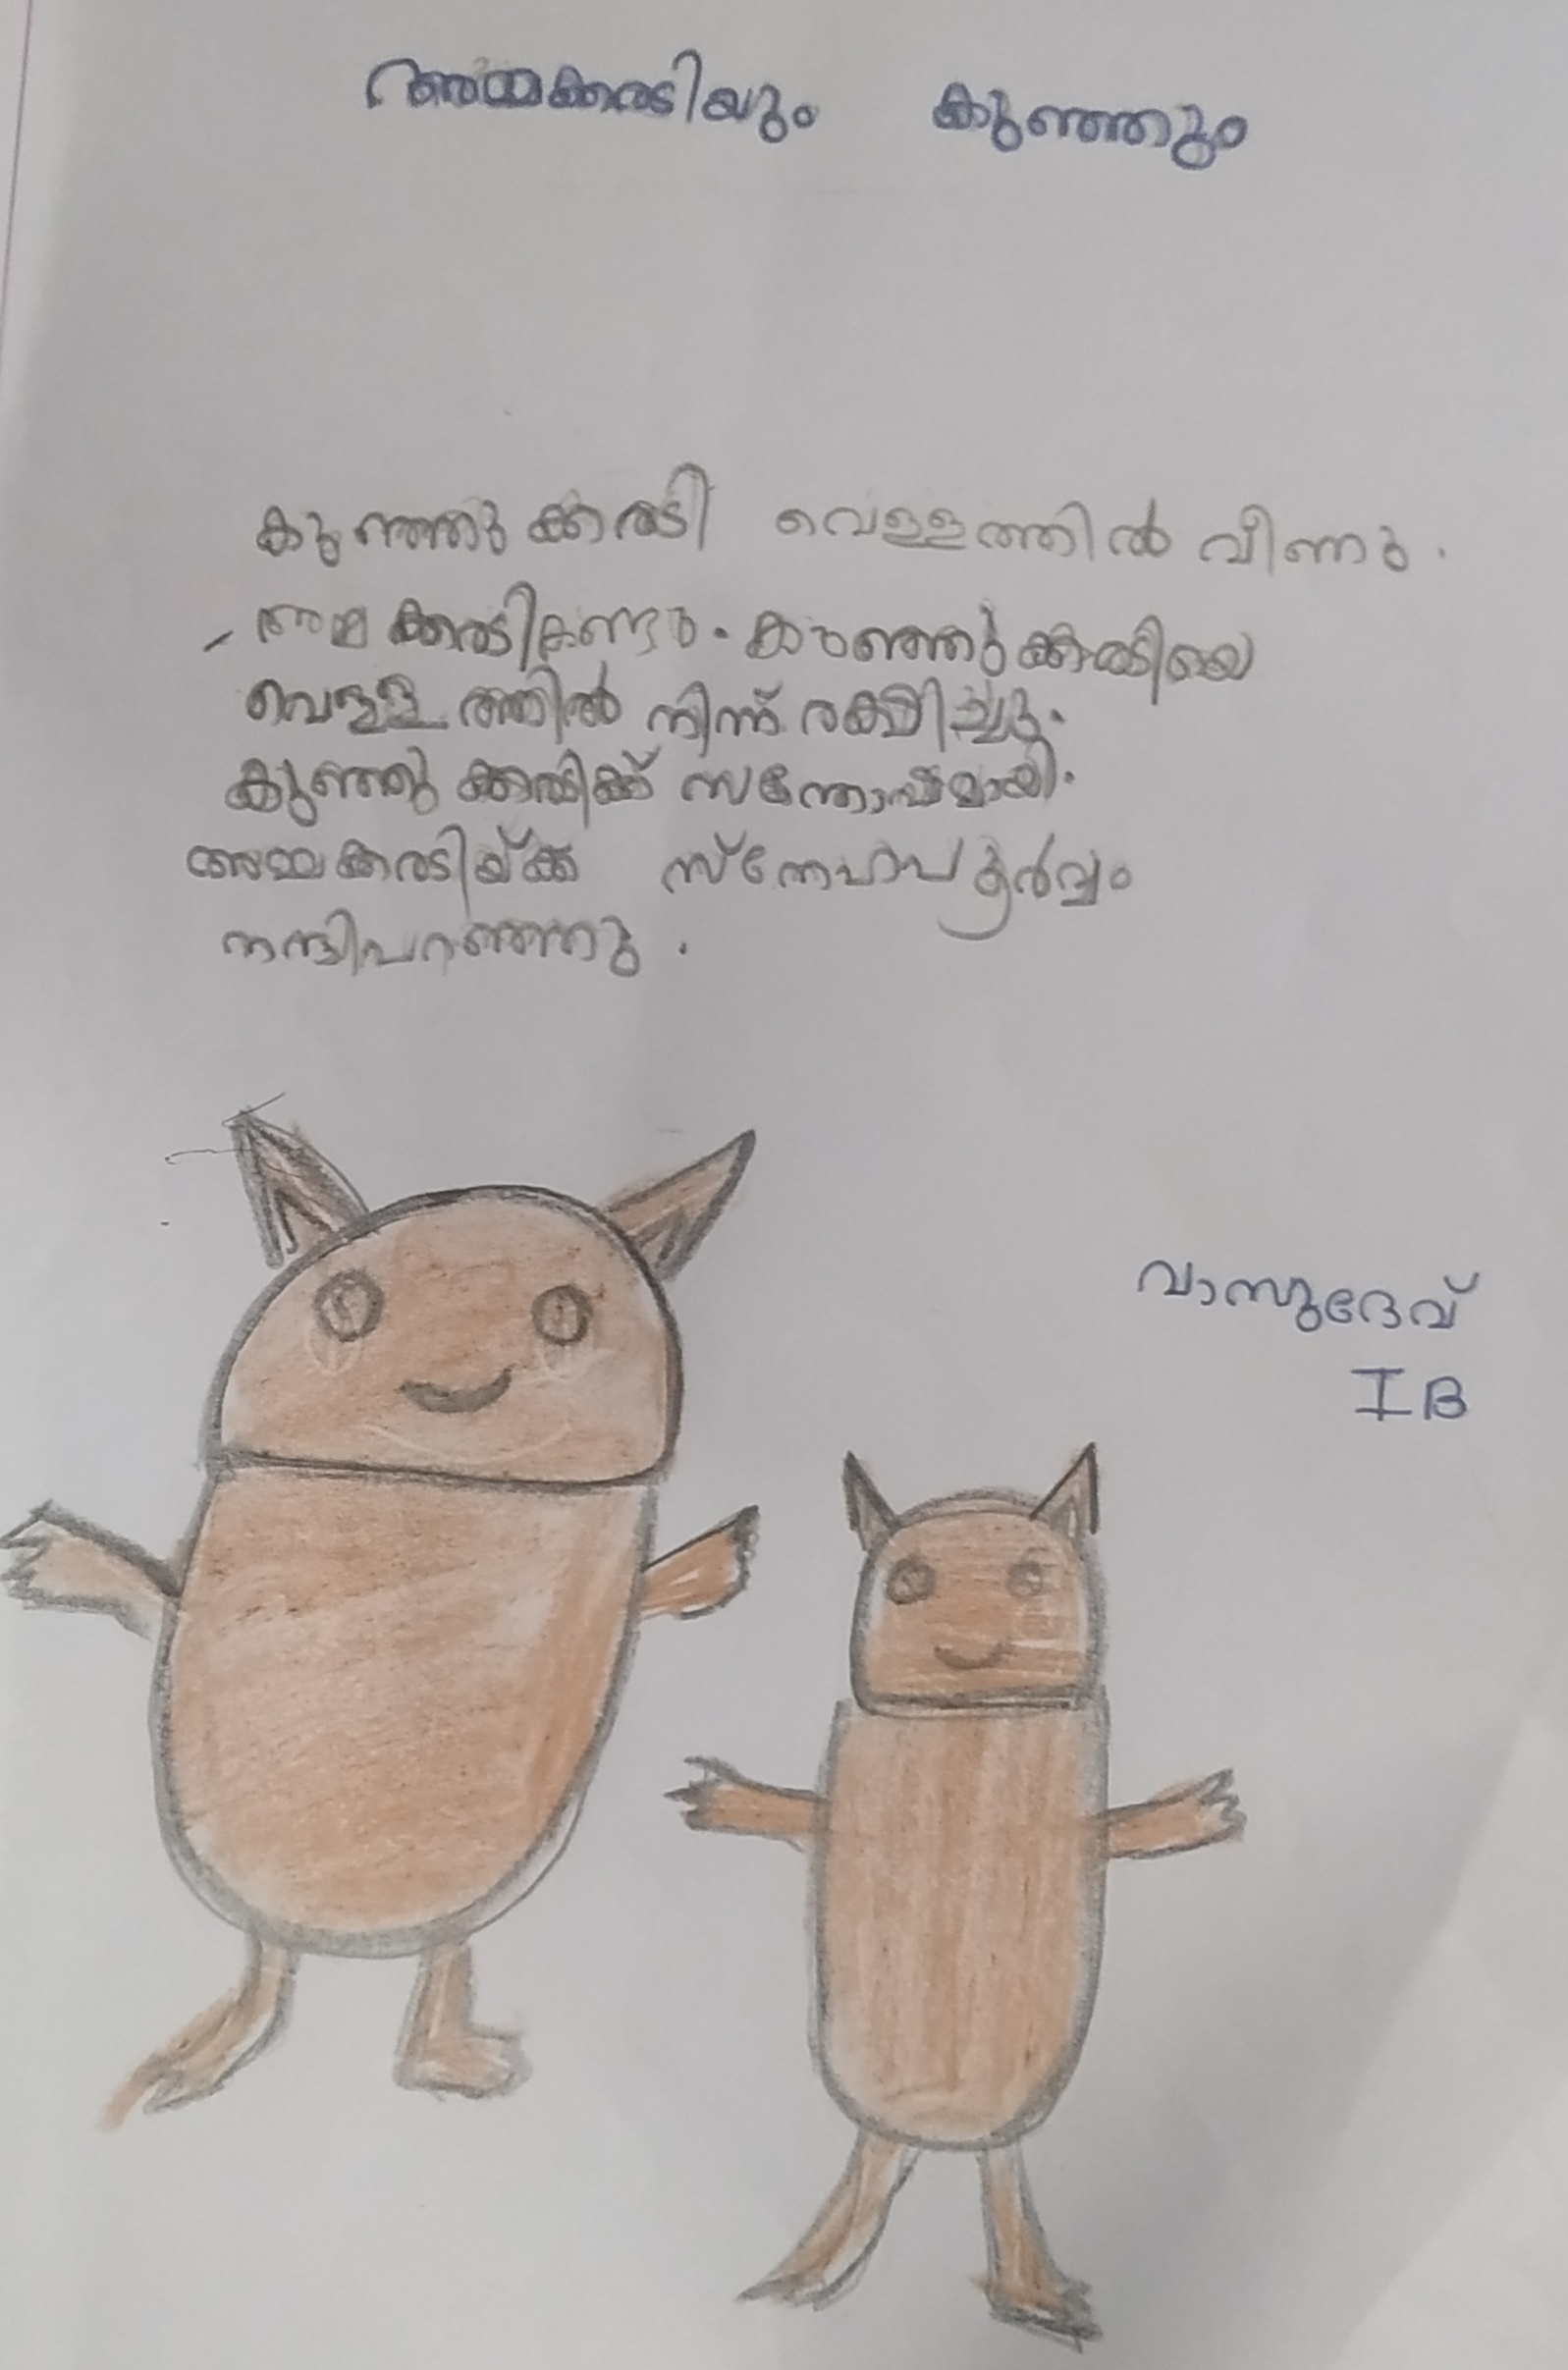 അമ്മക്കരടിയും കുഞ്ഞും
കുഞ്ഞു ക്കരടി വെള്ളത്തിൽ വീണു.
അമ്മ ക്കരടികണ്ടു. കുഞ്ഞു ക്കരടിയെ
വെള്ള ത്തിൽ നിന്ന് രക്ഷിച്ചു.
കുഞ്ഞു ക്കരടിക്ക് സന്തോഷമായി.
അമ്മക്കരടിയ്ക്ക സ്നേഹപൂർവ്വം
നന്ദിപറഞ്ഞു.
വാസുദേവ്
I B